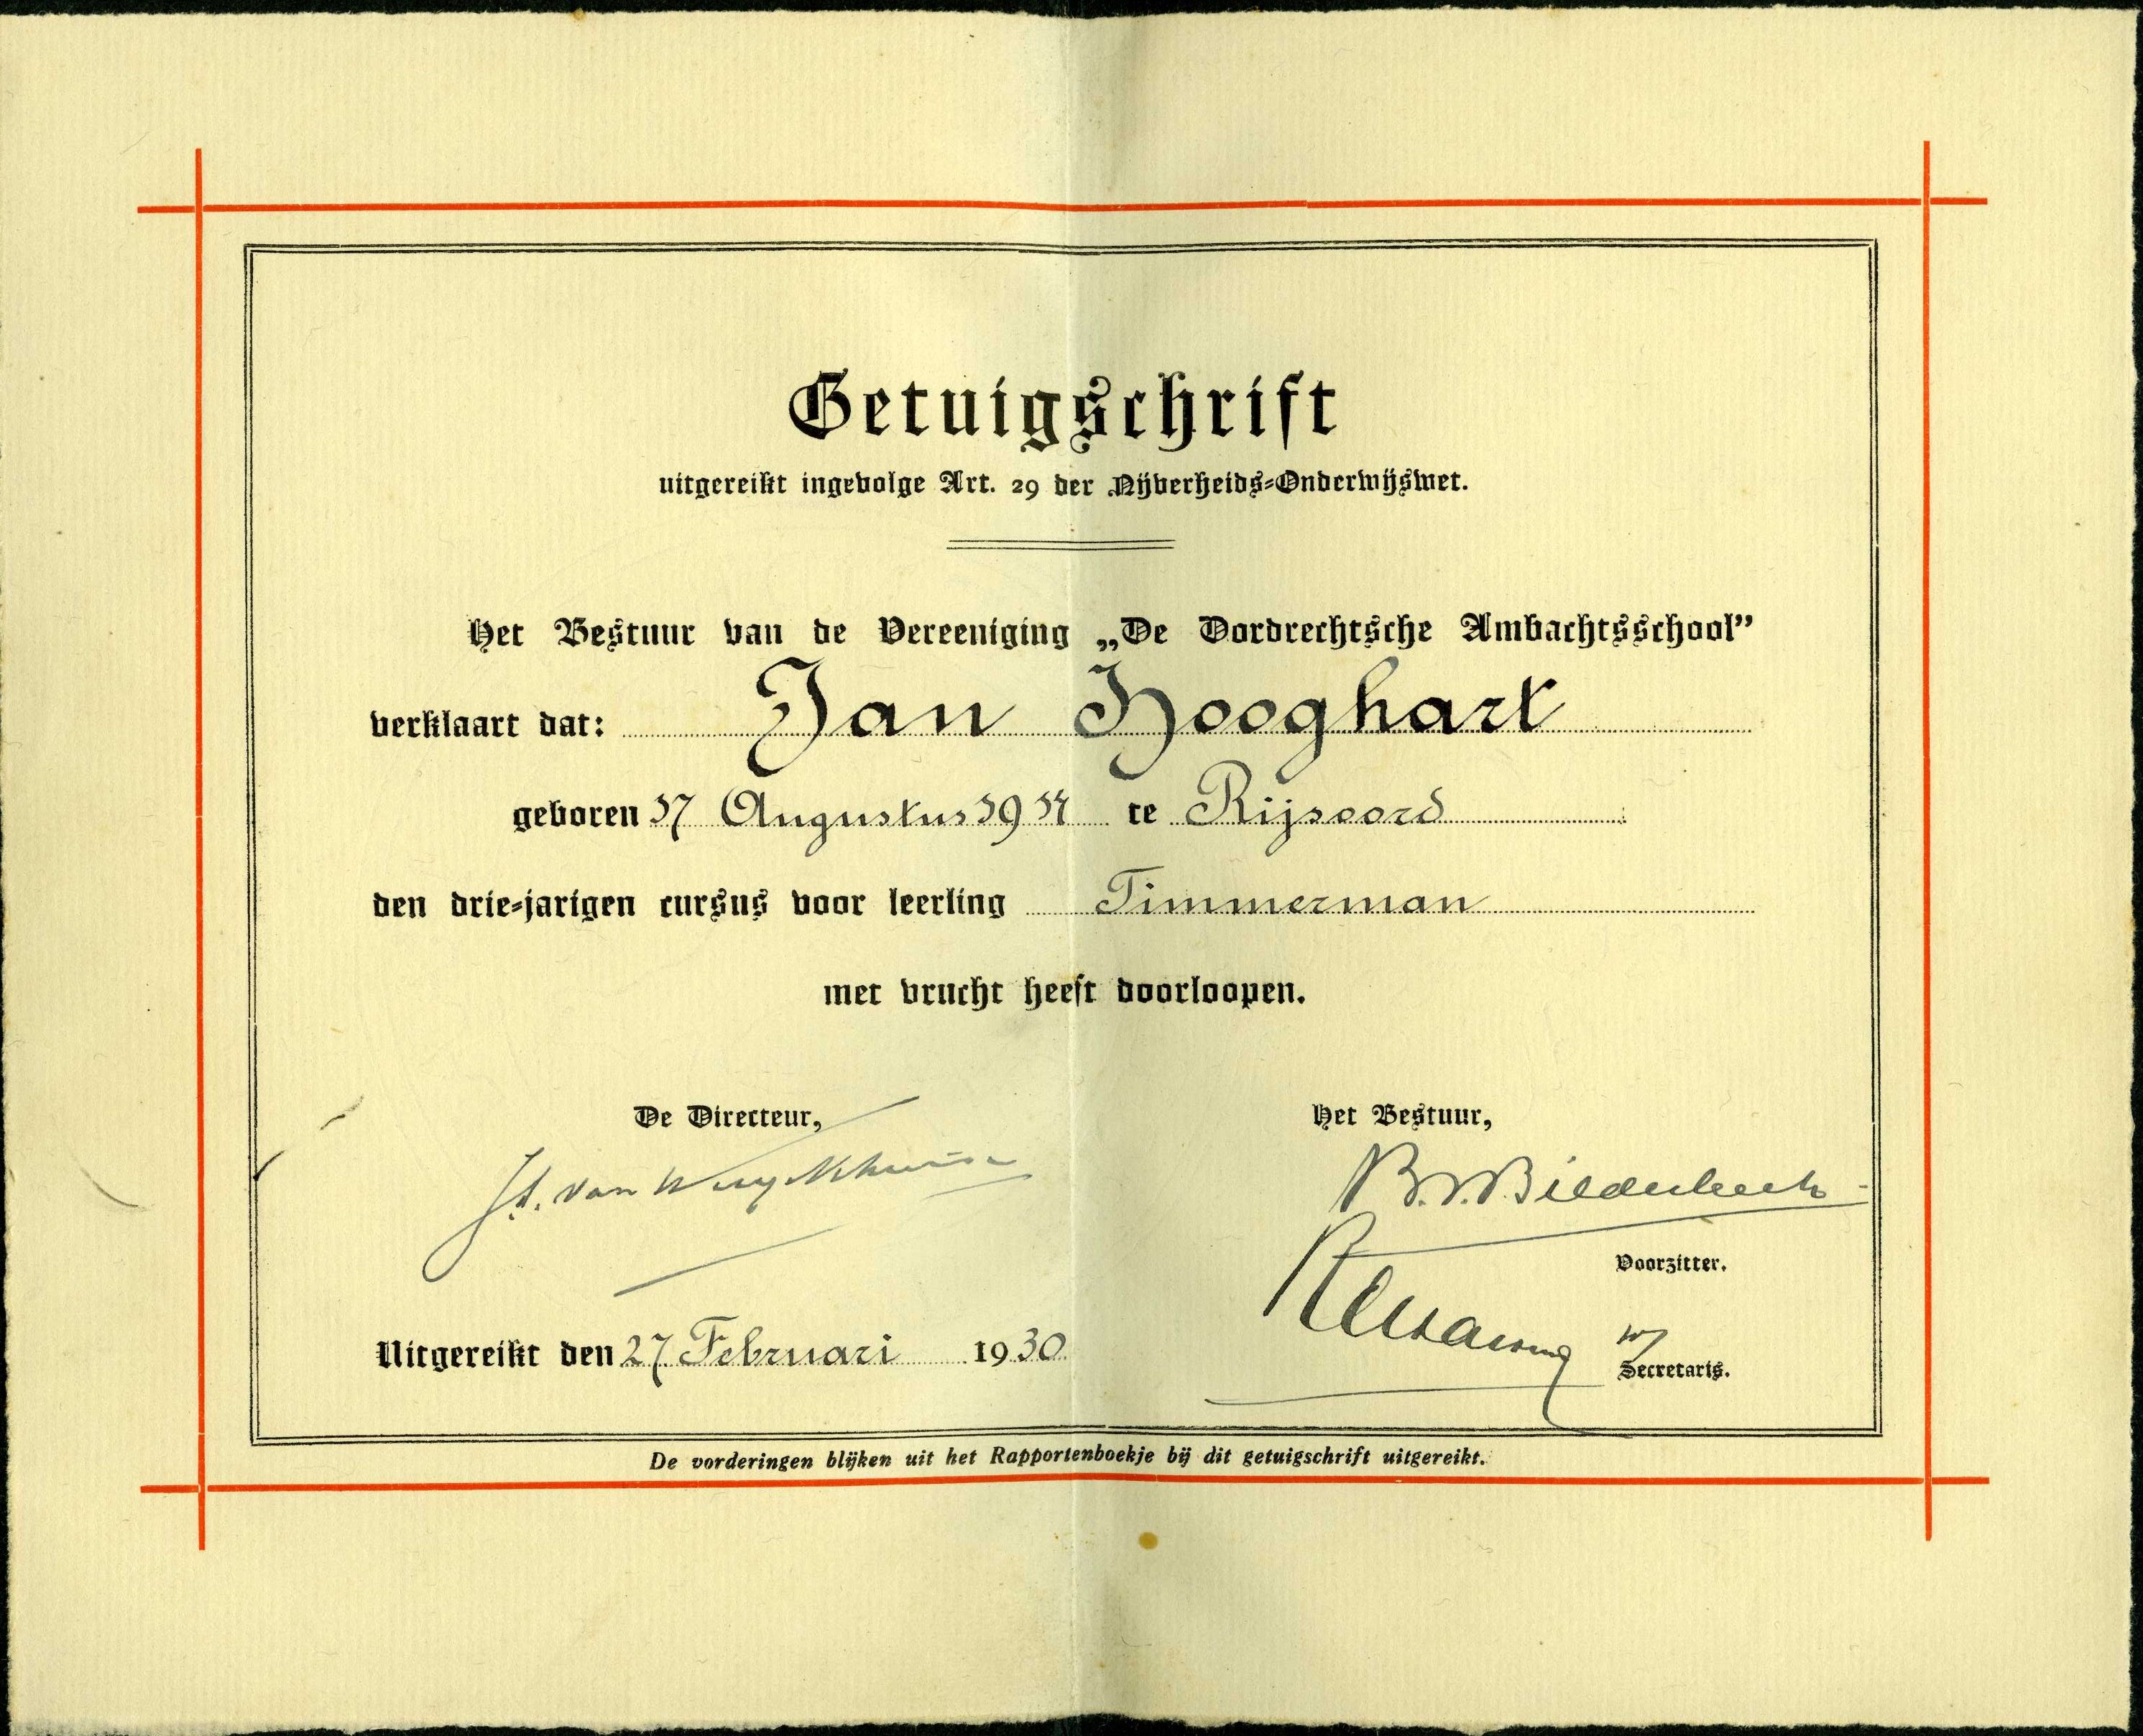 Getuigschrift
uitgereikt ingevolge Art. 29 der Nijverheids-Onderwijswet.
Het Bestuur van de Vereeniging „De Dordrechtsche Ambachtsschool”
verklaart dat: Jan Hooghart
geboren 17 Augustus 1914 te Rijsoord
den drie-jarigen cursus voor leerling Timmerman
met vrucht heeft doorloopen.
De Directeur,
Het Bestuur,
van
B. v. Bilderbeek
Voorzitter.
Secretaris.
Uitgereikt den 27 Februari 1930
De vorderingen blijken uit het Rapportenboekje bij dit getuigschrift uitgereikt.